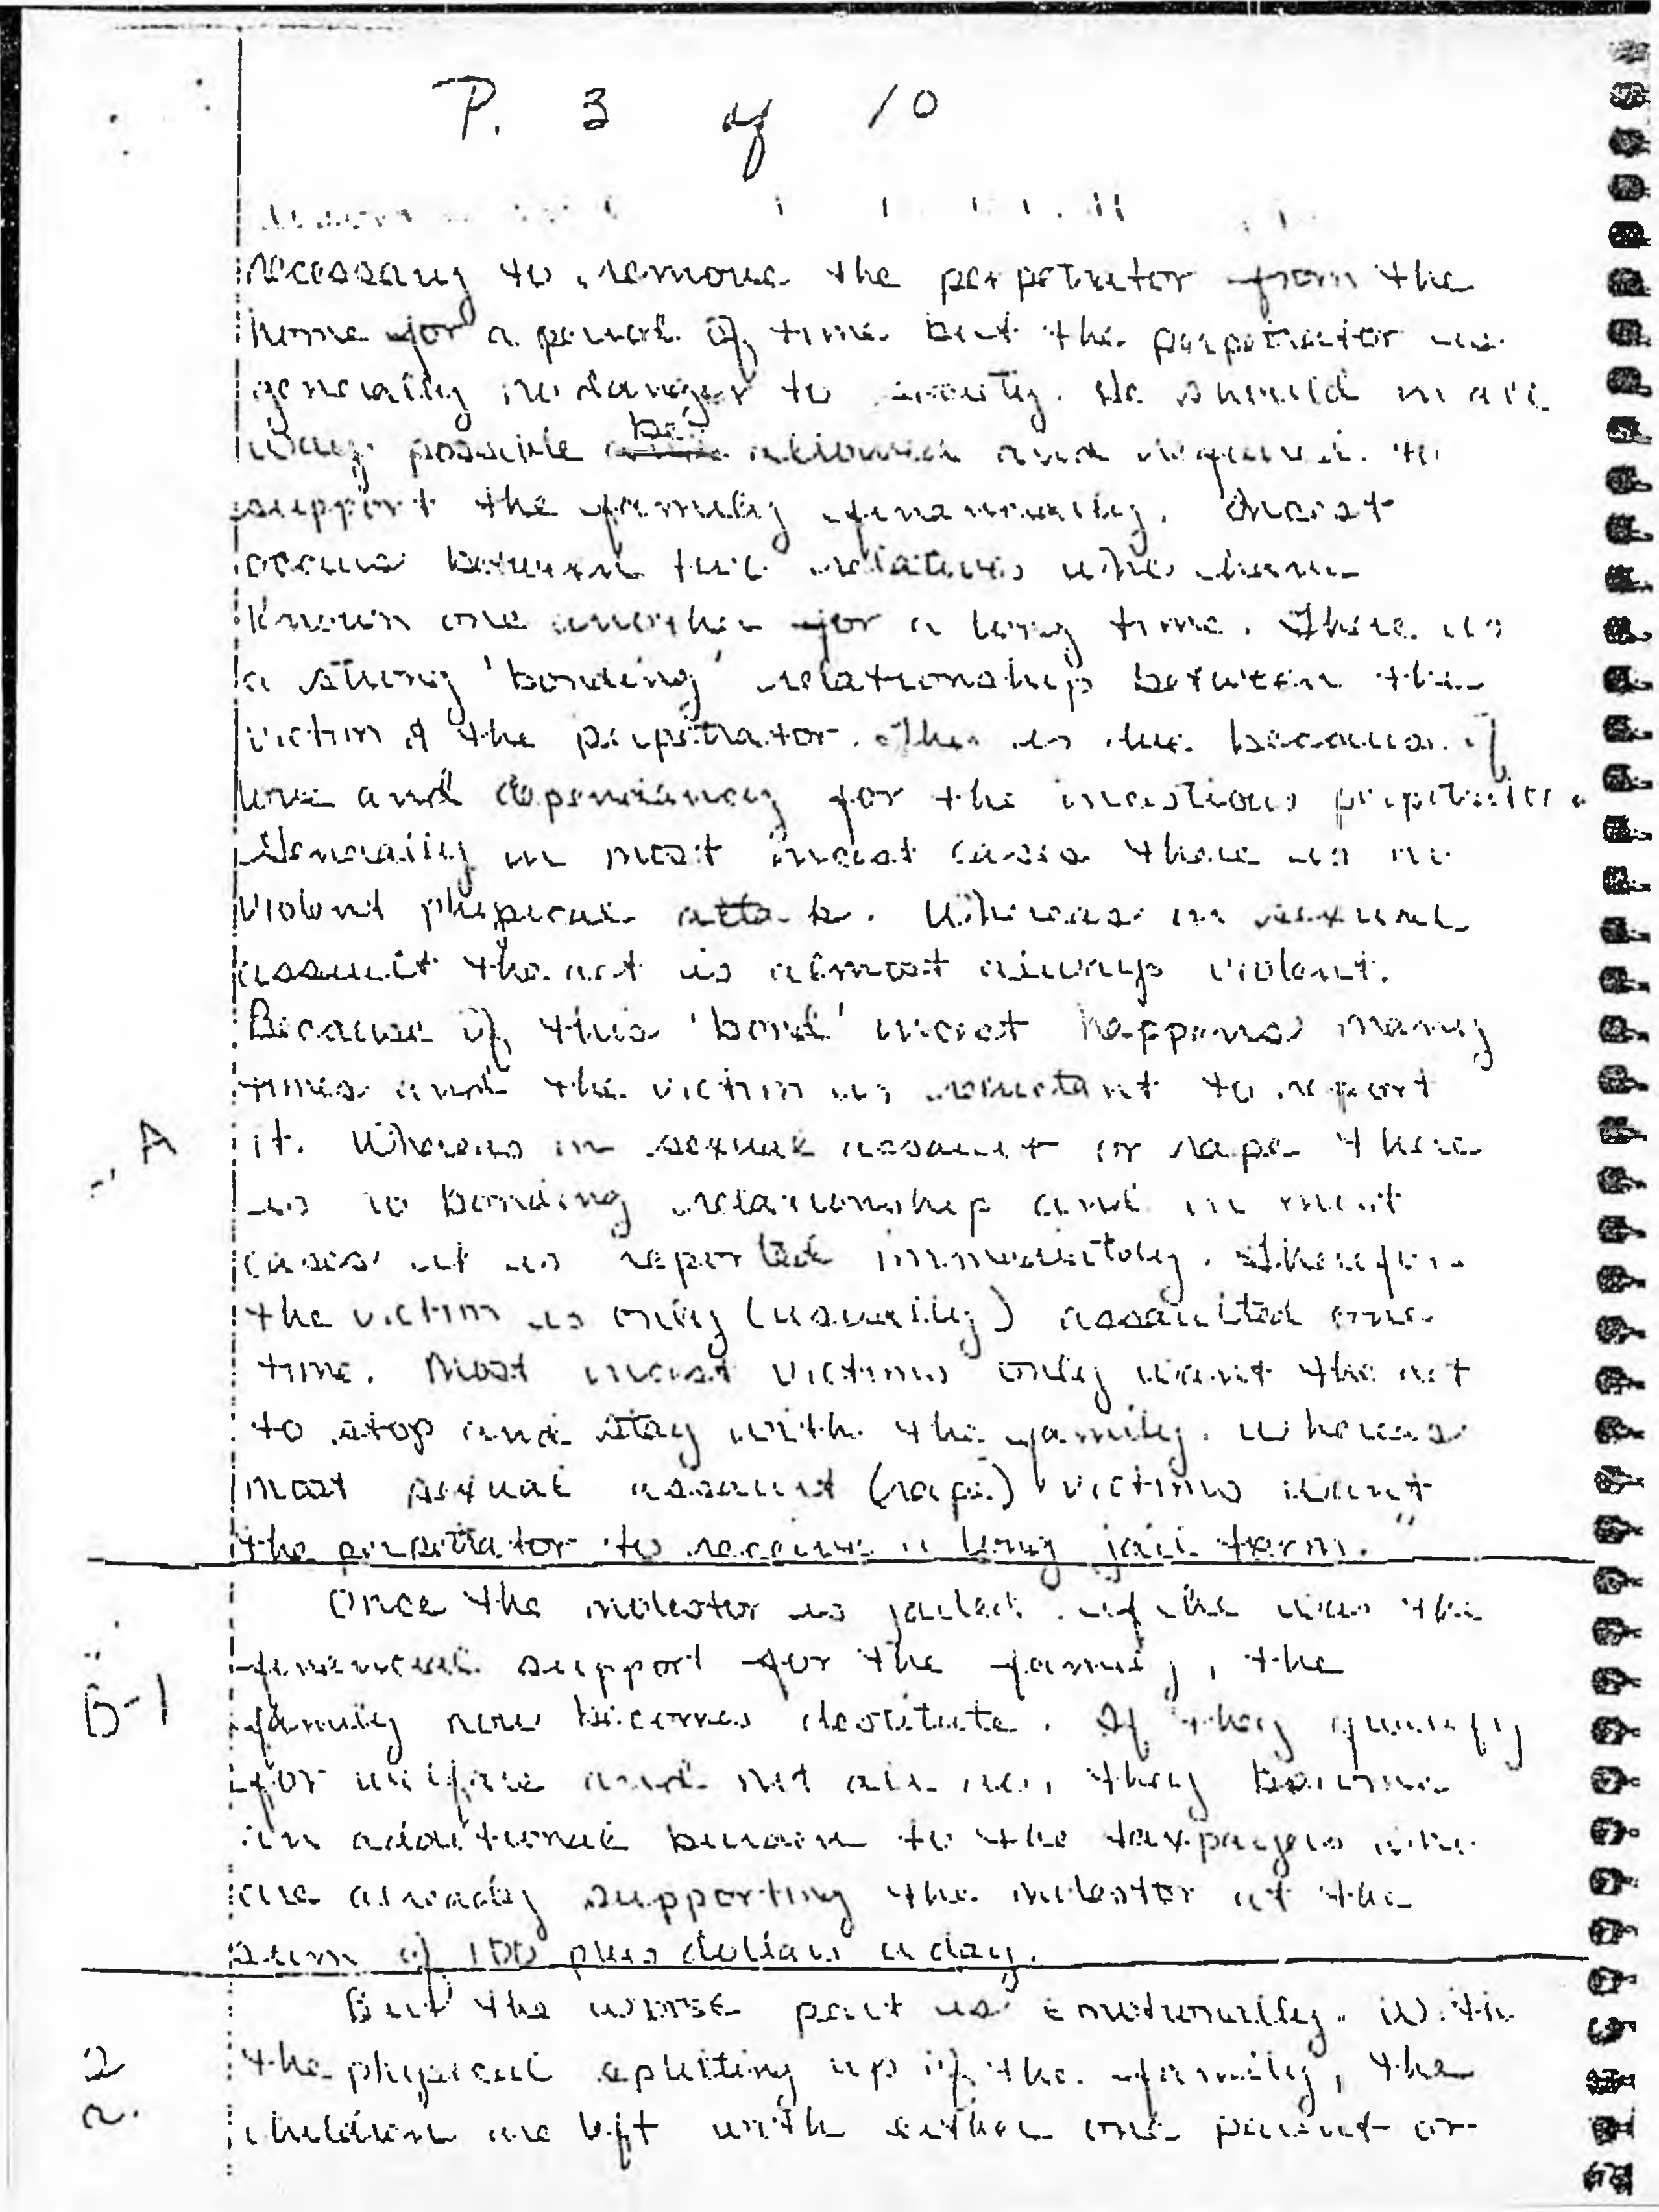 P. 3 of 10
necessary to remove the perpetrator from the
home for a period of time but the perpetrator is
generally no danger to society. He should in all
ways possible be allowed and required to
support the family financially. Incest
occurs between two relatives who have
known one another for a long time. There is
a strong 'bonding' relationship between the
victim & the perpetrator. This is due because of
love and dependancy for the incestious perpetrator.
Generally in most incest cases there is no
violent physical attack. Whereas in sexual
assault the act is almost always violent.
Because of this 'bond' incest happens many
times and the victim is reluctant to report
A
it. Whereas in sexual assault or rape there
is no bonding relationship and in most
cases it is reported immediately. Therefore
the victim is only (usually) assaulted one
time. Most incest victims only want the act
to stop and stay with the family. Whereas
most sexual assault (rape) victims want
the perpetrator to receive a long jail term."
Once the molestor is jailed, if he was the
financial support for the family, the
B-1
family now becomes destitute. If they qualify
for welfare and not all do, they become
an additional burden to the taxpayers who
are already supporting the molestor at the
sum of 100 plus dollars a day.
But the worse part is emotionally. With
2
the physical splitting up of the family, the
a.
children are left with either one parent or